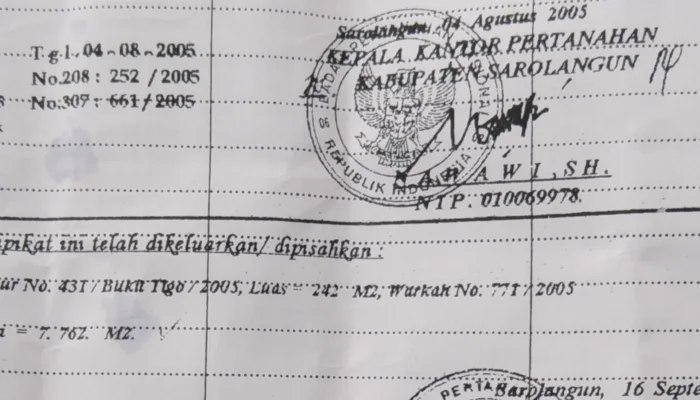 Sarolangun, 04 Agustus 2005
KEPALA KANTOR PERTANAHAN
KABUPATEN SAROLANGUN
Tgl. 04-08-2005
No.208 : 252 / 2005
No.307 : 661 / 2005
REPUBLIK INDONESIA
A W I , SH.
NIP. 010069978.
ini telah dikeluarkan/ dipisahkan :
No. 431 / Bukit Tigo / 2005, Luas = 242 M2, Warkah No. 771 / 2005
= 7. 762. M2.
Sarolangun, 16 Septe